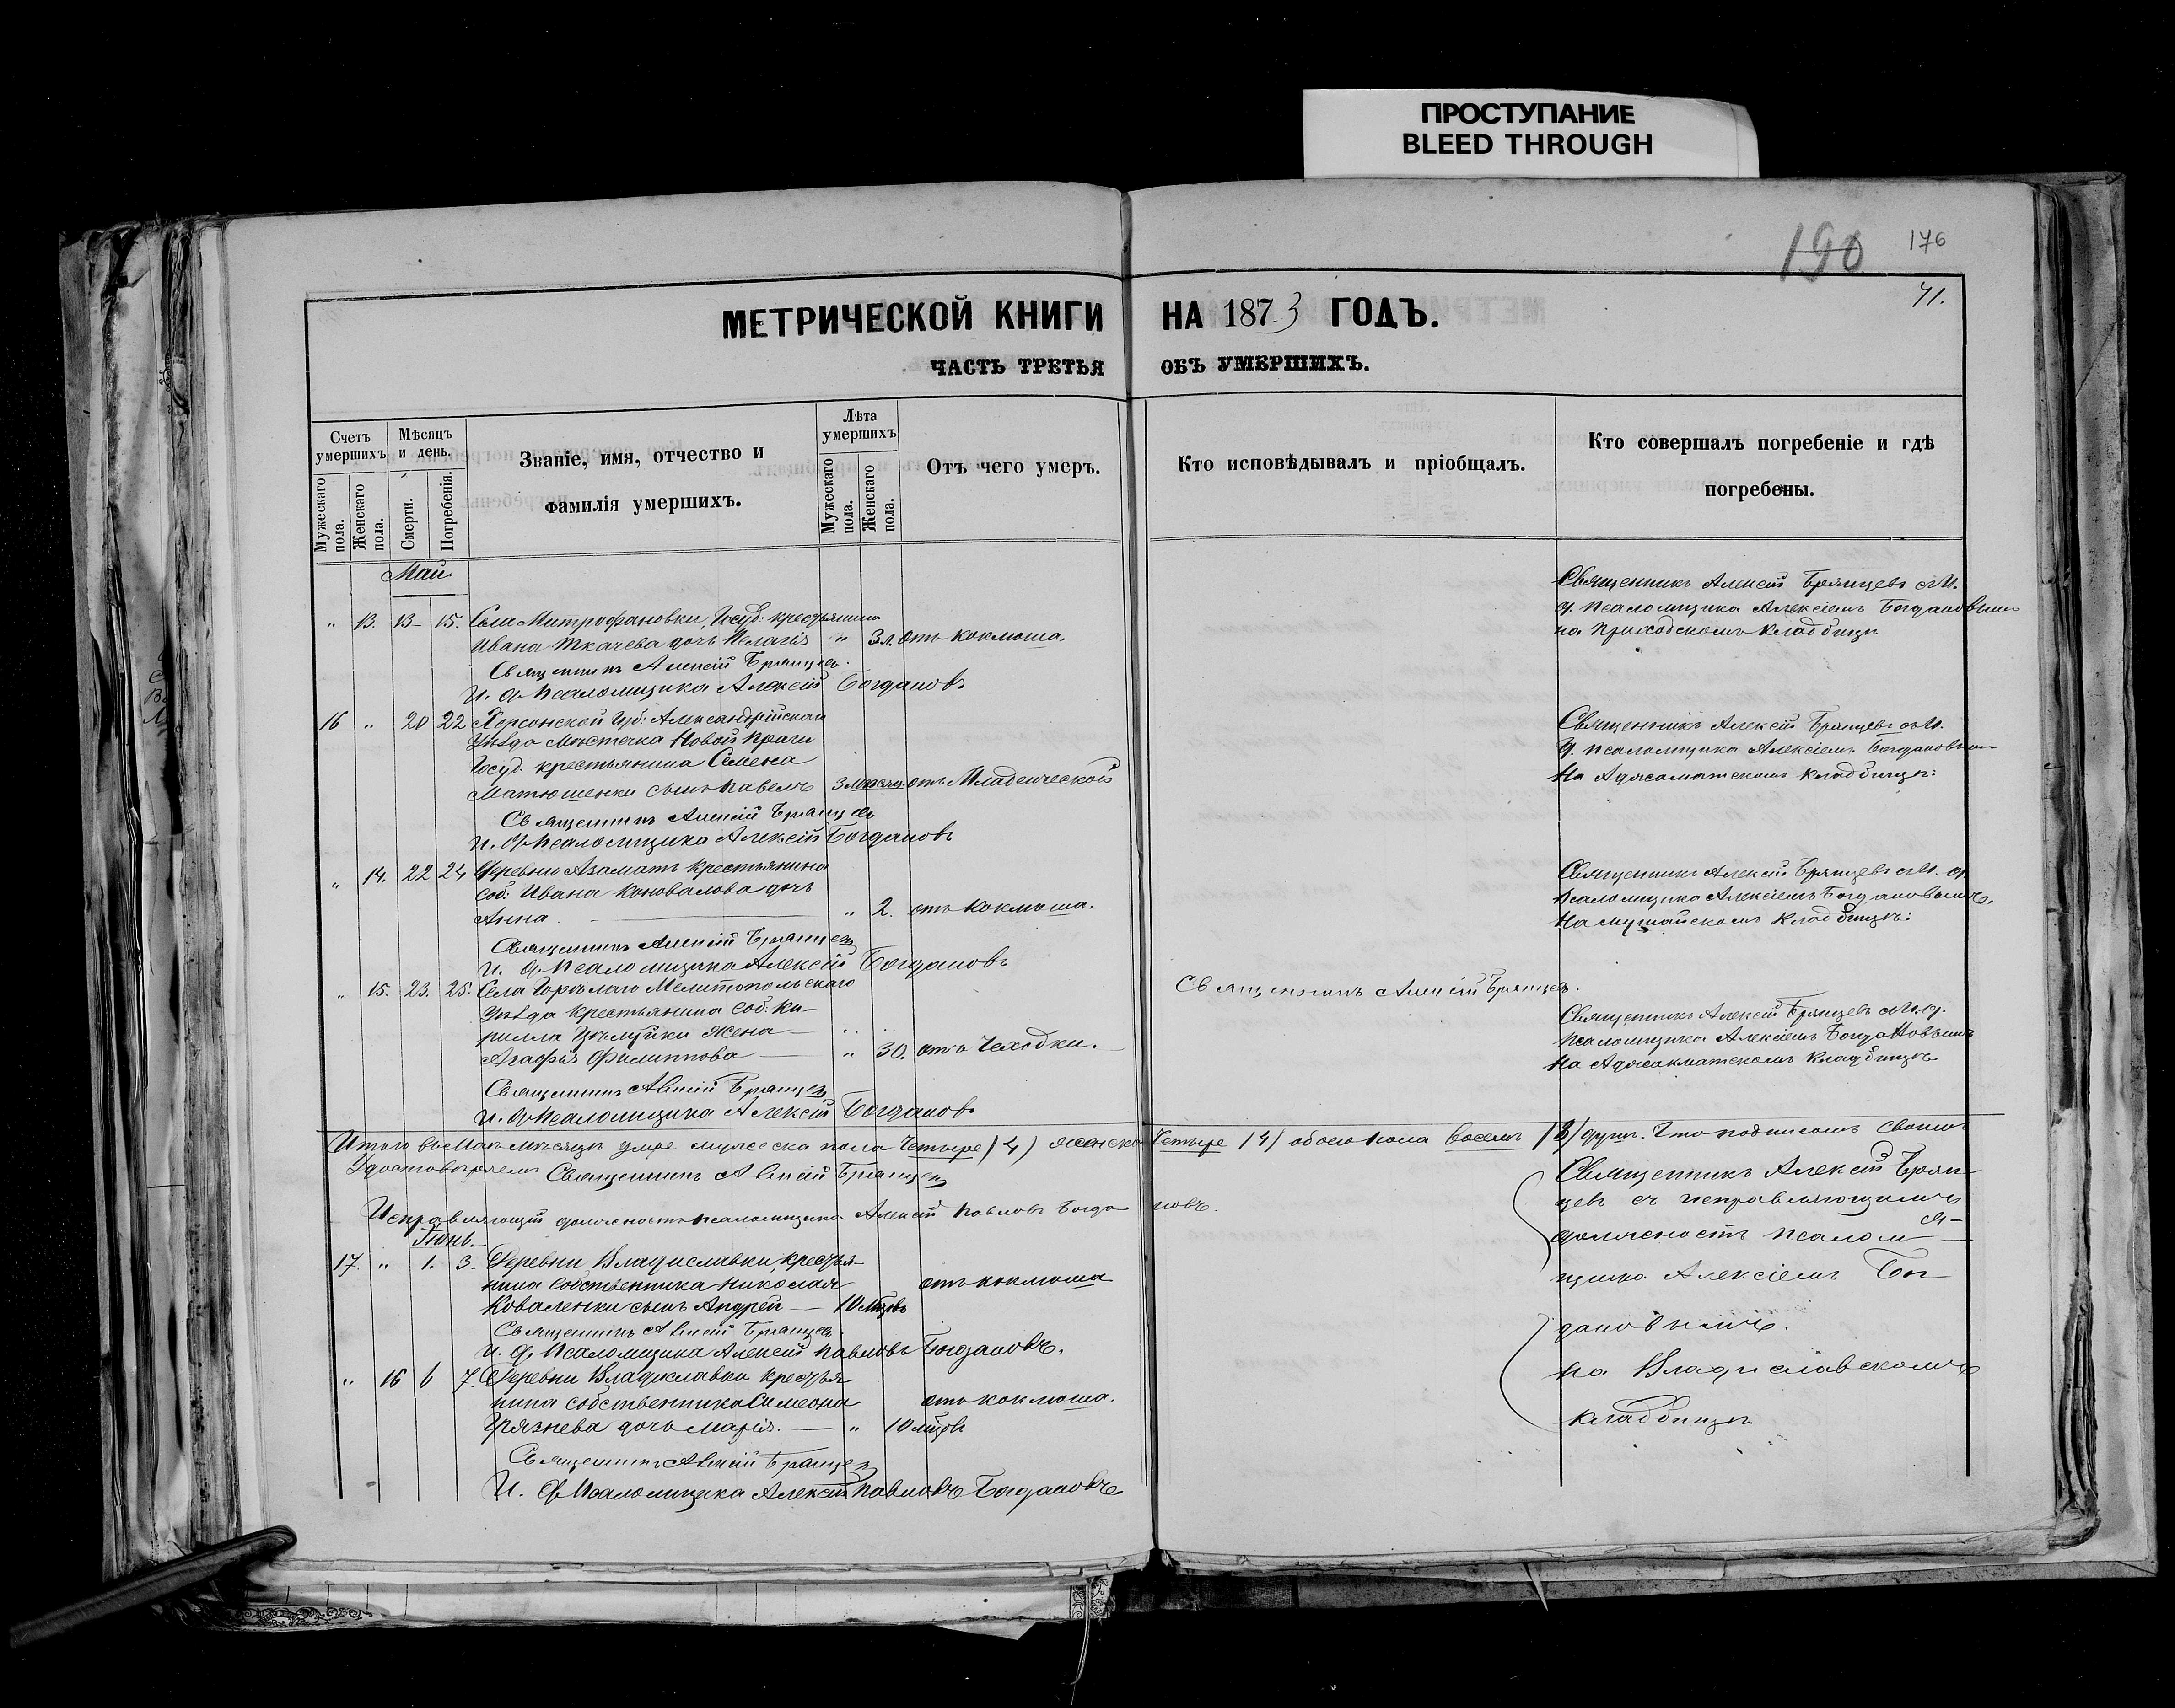 ПРОСТУПАНИЕ
BLEED THROUGH
190 176
41.
МЕТРИЧЕСКОЙ КНИГИ НА 1873 ГОДЪ.
ЧАСТЬ ТРЕТЬЯ ОБЪ УМЕРШИХЪ.
Счетъ умершихъ
Мужескаго пола.
Женскаго пола.
Мѣсяцъ и день.
Смерти.
Погребенія.
Званіе, имя, отчество и
фамилія умершихъ.
Лѣта умершихъ
Мужескаго пола.
Женскаго пола.
Отъ чего умеръ.
Кто исповѣдывалъ и пріобщалъ.
Кто совершалъ погребеніе и гдѣ
погребены.
Май
„ 13. 13 15. Села Митрофановки, Госуд. крестьянина
Ивана Ткачева дочь Пелагія „ 3 л. отъ коклюша.
Священникъ Алексій Брянцевъ.
И. д. Псаломщика Алексій Богдановъ
Священникъ Алексій Брянцевъ съ И.
д. псаломщика Алексіемъ Богдановымъ
на приходскомъ кладбищѣ
16 „ 20 22 Херсонской Губ: Александрійскаго
Уѣзда Мѣстечка Новой Праги
Госуд. крестьянина Семена
Матюшенки сынъ Павелъ 3 мѣсяц. отъ Младенческой
Священникъ Алексій Брянцевъ
И. д. Псаломщика Алексій Богдановъ
Священникъ Алексій Брянцевъ съ И.
д. псаломщика Алексіемъ Богдановымъ
На кладбищѣ:
„ 14. 22 24 Деревни Азаматъ крестьянина
соб: Ивана Коновалова дочь
Анна. „ 2. отъ коклюша.
Священникъ Алексій Брянцевъ
И. д. Псаломщика Алексій Богдановъ
Священникъ Алексій Брянцевъ съ И. д.
псаломщика Алексіемъ Богдановымъ.
На кладбищѣ:
„ 15. 23. 25. Села Горѣлаго Мелитопольскаго
Уѣзда крестьянина соб: Ки-
рилла жена
Агафія Филиппова „ 30. отъ Чахотки.
Священникъ Алексій Брянцевъ
И. д. Псаломщика Алексій Богдановъ
Священникъ Алексій Брянцевъ.
Священникъ Алексій Брянцевъ съ И. д.
псаломщика Алексіемъ Богдановымъ
На кладбищѣ.
Итого въ Маѣ мѣсяцѣ умре мужеска пола Четыре (4) женска Четыре (4) обоего пола восемь (8) душъ. Что подписомъ своимъ
Удостовѣряемъ Священникъ Алексій Брянцевъ
Исправляющій должность псаломщика Алексій Павловъ Богдановъ.
Іюнь.
17. „ 1. 3. Деревни Владиславки, крестья-
нина собственника Николая отъ коклюша
Коваленки сынъ Андрей 10 мѣсцовъ
Священникъ Алексій Брянцевъ
И. д. Псаломщика Алексій Павловъ Богдановъ.
„ 16 6 7. Деревни Владиславки крестья-
нина собственника Симеона отъ коклюша.
Грязнева дочь Марія. „ 10 мѣсцовъ
Священникъ Алексій Брянцевъ
И. д. Псаломщика Алексій Павловъ Богдановъ
Священникъ Алексій Брян-
цевъ съ исправляющимъ
должность псалом-
щика Алексіемъ Бог-
дановымъ.
на Владиславскомъ
кладбищѣ